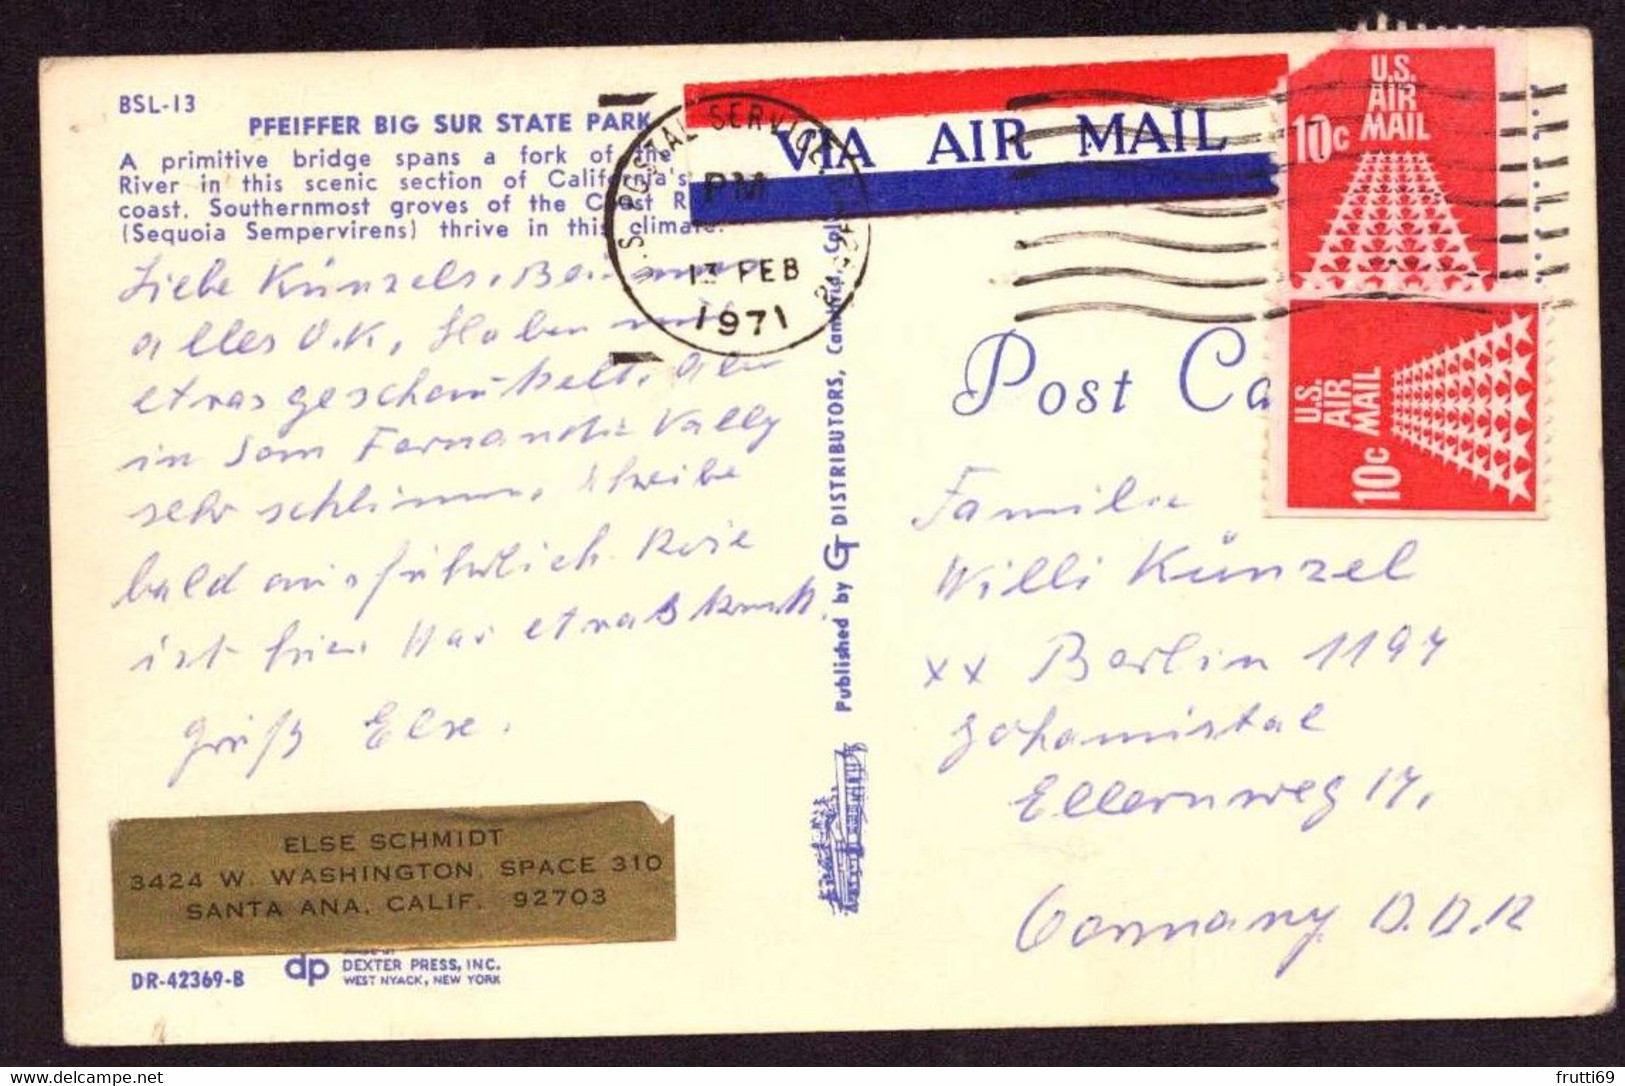 BSL-13
PFEIFFER BIG SUR STATE PARK
A primitive bridge spans a fork of the
River in this scenic section of California's
coast. Southernmost groves of the Coast R
(Sequoia Sempervirens) thrive in this climate.
Liebe Künzels, Bei uns
alles O.K, Haben
etwas geschaukelt. Aber
in San Fernando Vally
sehr schlimm, schreibe
bald ausführlich. Rosie
ist hier War etwas krank.
Grüß Else.
ELSE SCHMIDT
3424 W. WASHINGTON, SPACE 310
SANTA ANA, CALIF. 92703
DR-42369-B
dp
MADE BY
DEXTER PRESS, INC.
WEST NYACK, NEW YORK
U.S. POSTAL SERVICE
PM
13 FEB
1971
VIA AIR MAIL
U.S.
AIR
MAIL
10c
U.S.
AIR
MAIL
10c
Post Ca
Published by GT DISTRIBUTORS, Cambria,
Familie
Willi Künzel
xx Berlin 1197
Johannistal
Ellernweg 17.
Germany D.D.R
frutti69